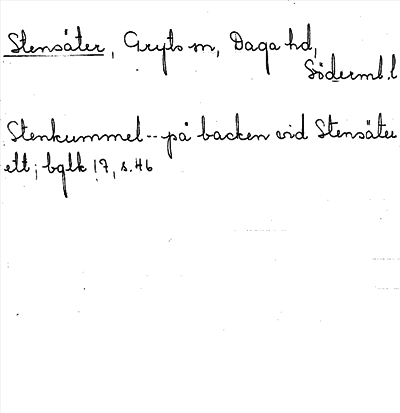 Stensäter, Gryts sn, Daga hd,
Söderml. l
Stenkummel -- på backen vid Stensäter
ett; bglk 17, s. 46